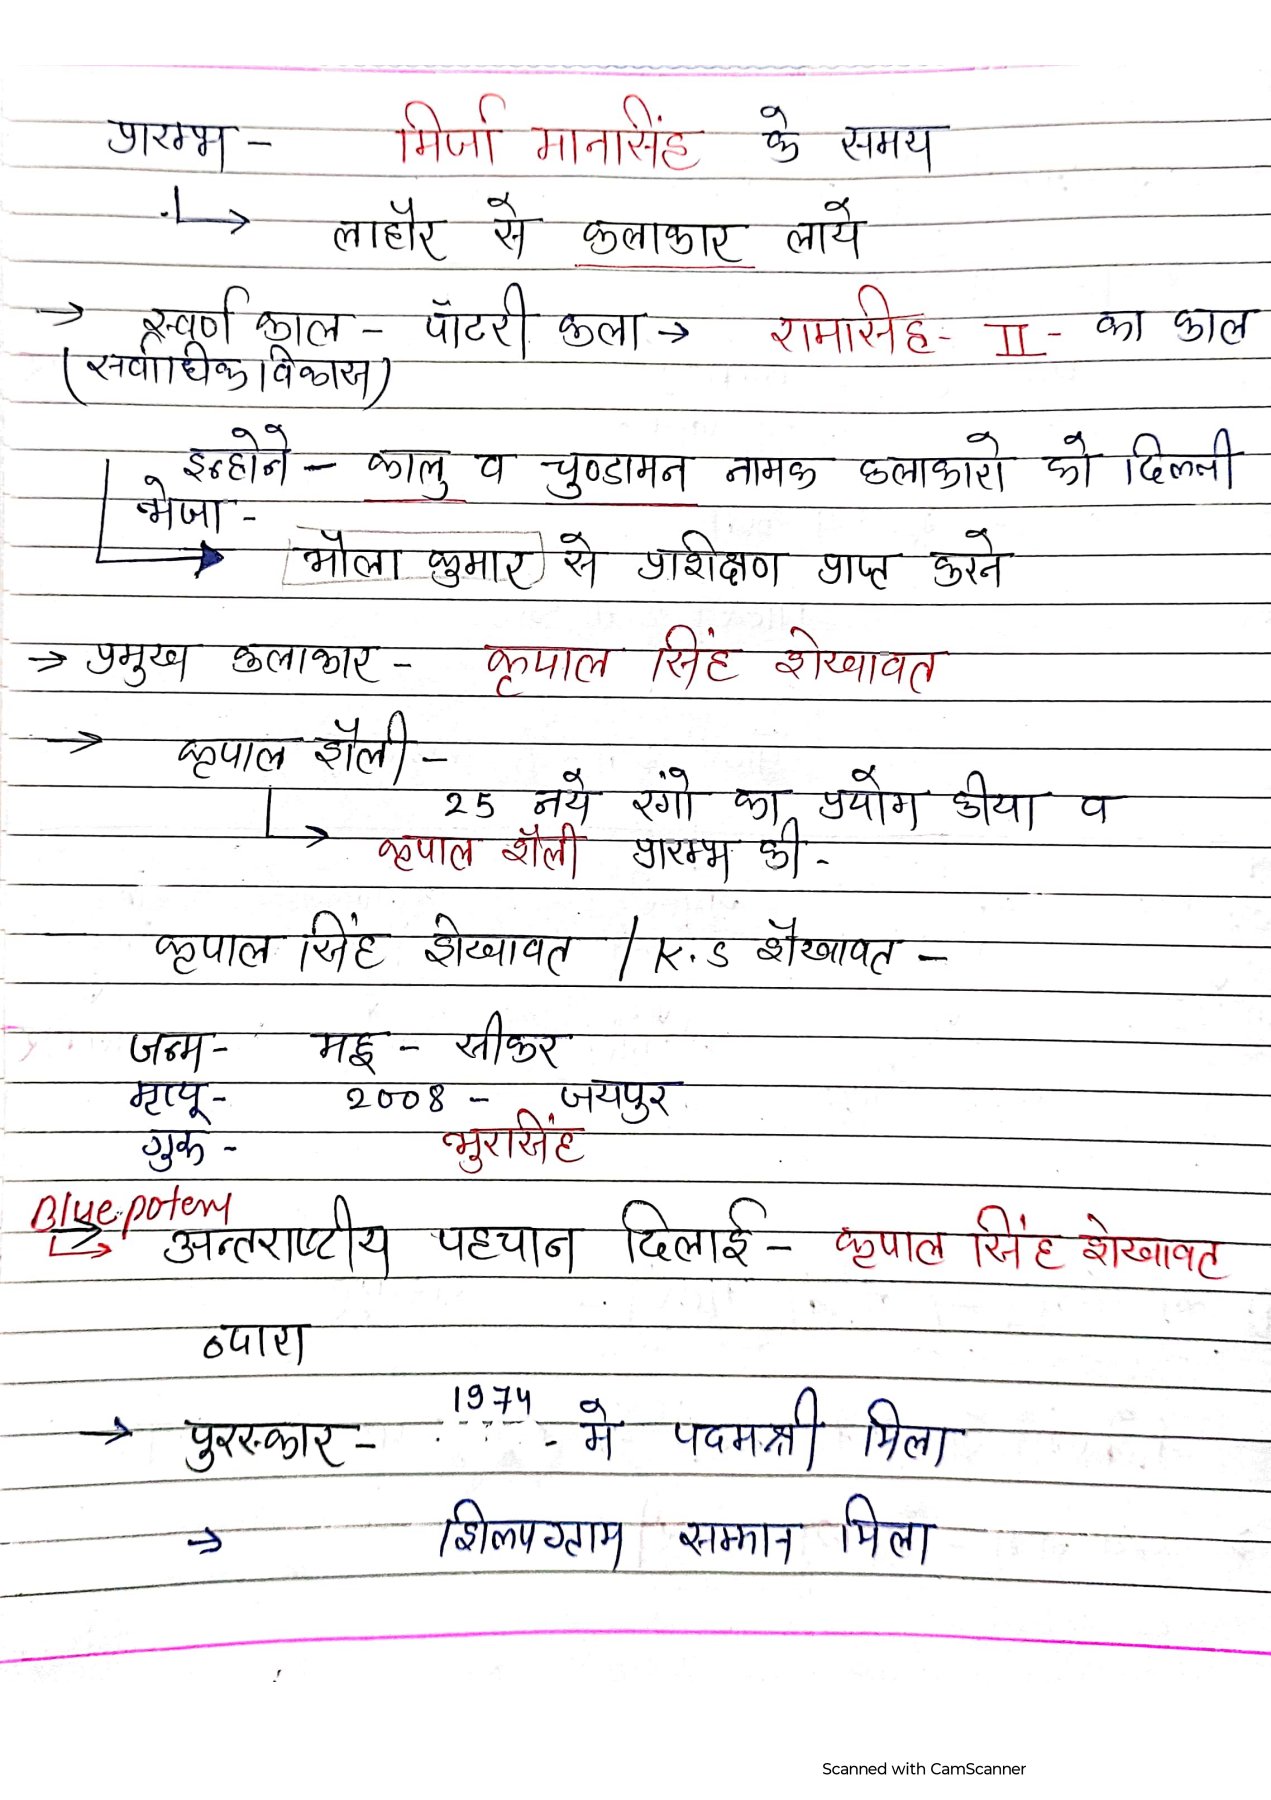 प्रारम्भ - मिर्जा मानसिंह के समय
लाहौर से कलाकार लाये
→ स्वर्ण काल - पॉटरी कला → रामसिंह - II - का काल
(सर्वाधिक विकास)
इन्होने - कालु व चुण्डामन नामक कलाकारो को दिल्ली
भेजा -
भौला कुमार से प्रशिक्षण प्राप्त करने
→ प्रमुख कलाकार - कृपाल सिंह शेखावत
→ कृपाल शैली -
25 नये रंगो का प्रयोग कीया व
कृपाल शैली प्रारम्भ की -
कृपाल सिंह शेखावत / K.S शैखावत -
जन्म - मऊ - सीकर
मृत्यू - 2008 - जयपुर
गुरू - भुरसिंह
Blue potery
→ अन्तराष्टीय पहचान दिलाई - कृपाल सिंह शेखावत
1974
→ पुरस्कार - - मे पदमश्री मिला
→ शिल्पग्राम सम्मान मिला
Scanned with CamScanner